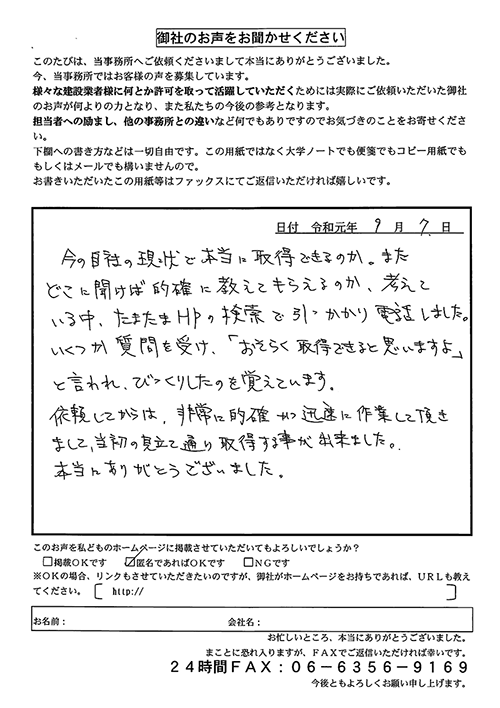 御社のお声をお聞かせください
このたびは、当事務所へご依頼くださいまして本当にありがとうございました。
今、当事務所ではお客様の声を募集しています。
様々な建設業者様に何とか許可を取って活躍していただくためには実際にご依頼いただいた御社
のお声が何よりの力となり、また私たちの今後の参考となります。
担当者への励まし、他の事務所との違いなど何でもありですのでお気づきのことをお寄せくださ
い。
下欄への書き方などは一切自由です。この用紙ではなく大学ノートでも便箋でもコピー用紙でも
もしくはメールでも構いませんので。
お書きいただいたこの用紙等はファックスにてご返信いただければ嬉しいです。
日付 令和元年 9 月 7 日
今の自社の現状で本当に取得できるのか。また
どこに聞けば的確に教えてもらえるのか、考えて
いる中、たまたまHPの検索で引っかかり電話しました。
いくつか質問を受け、「おそらく取得できると思いますよ」
と言われ、びっくりしたのを覚えています。
依頼してからは、非常に的確かつ迅速に作業して頂き
まして、当初の見立て通り取得する事が出来ました。
本当にありがとうございました。
このお声を私どものホームページに掲載させていただいてもよろしいでしょうか?
□掲載OKです ☑匿名であればOKです □NGです
※OKの場合、リンクもさせていただきたいのですが、御社がホームページをお持ちであれば、URLも教え
てください。〔 http:// 〕
お名前: 会社名:
お忙しいところ、本当にありがとうございました。
まことに恐れ入りますが、FAXでご返信いただければ幸いです。
24時間FAX:06-6356-9169
今後ともよろしくお願い申し上げます。